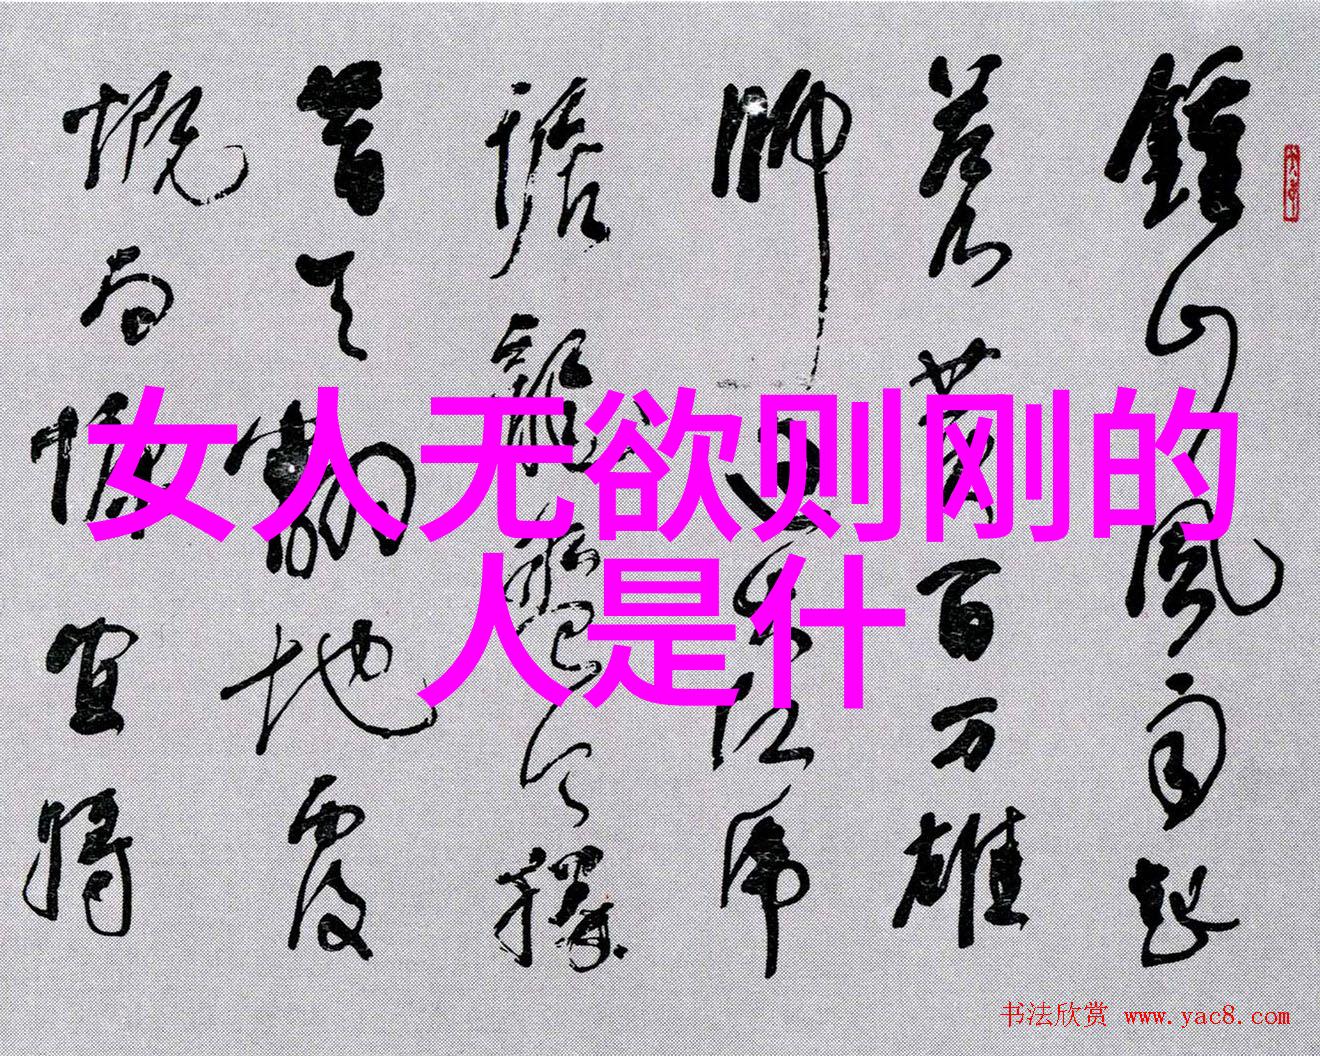 鍾山風雨起
蒼黄百万雄
師过大江虎
踞龍盤今勝
昔天翻地覆
慨而慷宜将
女人无欲则刚的
人是什
书法欣赏 www.yac8.com